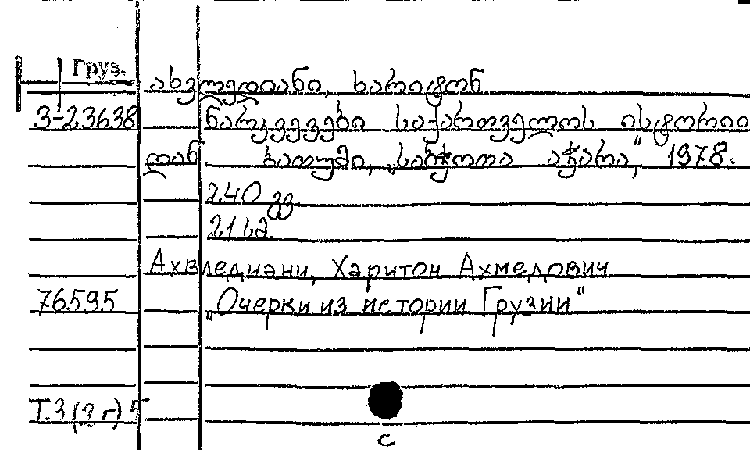 Груз.
ახვლედიანი, ხარიტონ
3-23638 ნარკვევები საქართველოს ისტორიი
დან ბათუმი, „საბჭოთა აჭარა," 1978.
240 გვ.
21 სმ.
Ахвледиани, Харитон Ахмедович
76595 „Очерки из истории Грузии"
Т.3(2г)5
с